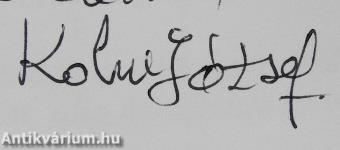 Kolni József
Antikvárium.hu